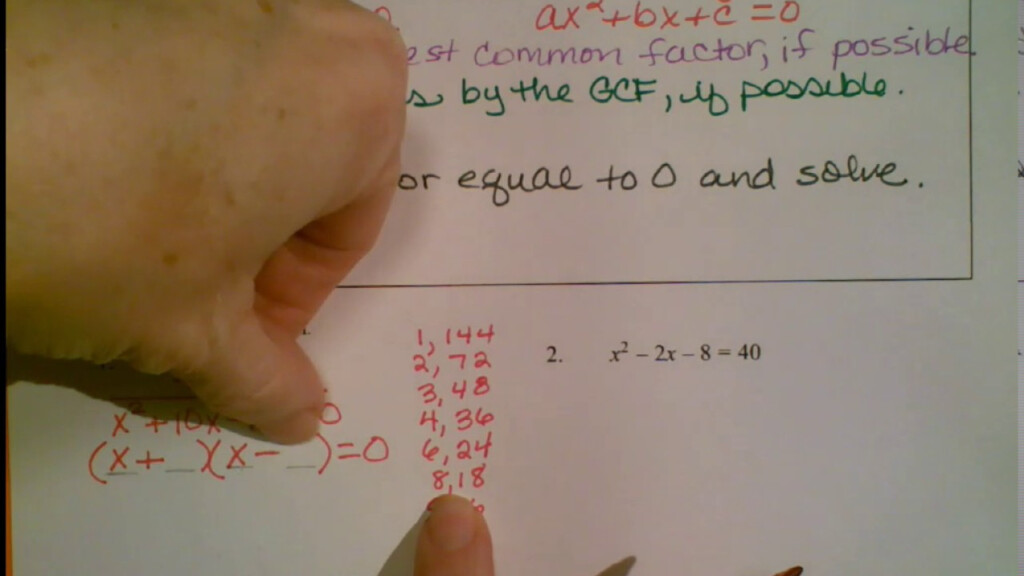 ax² + bx + c = 0
common factor, if possible
by the GCF, if possible.
or equal to 0 and solve.
1, 144
2, 72
3, 48
4, 36
6, 24
8, 18
x² + 10x 0
(x + _)(x - _) = 0
2. x² – 2x – 8 = 40